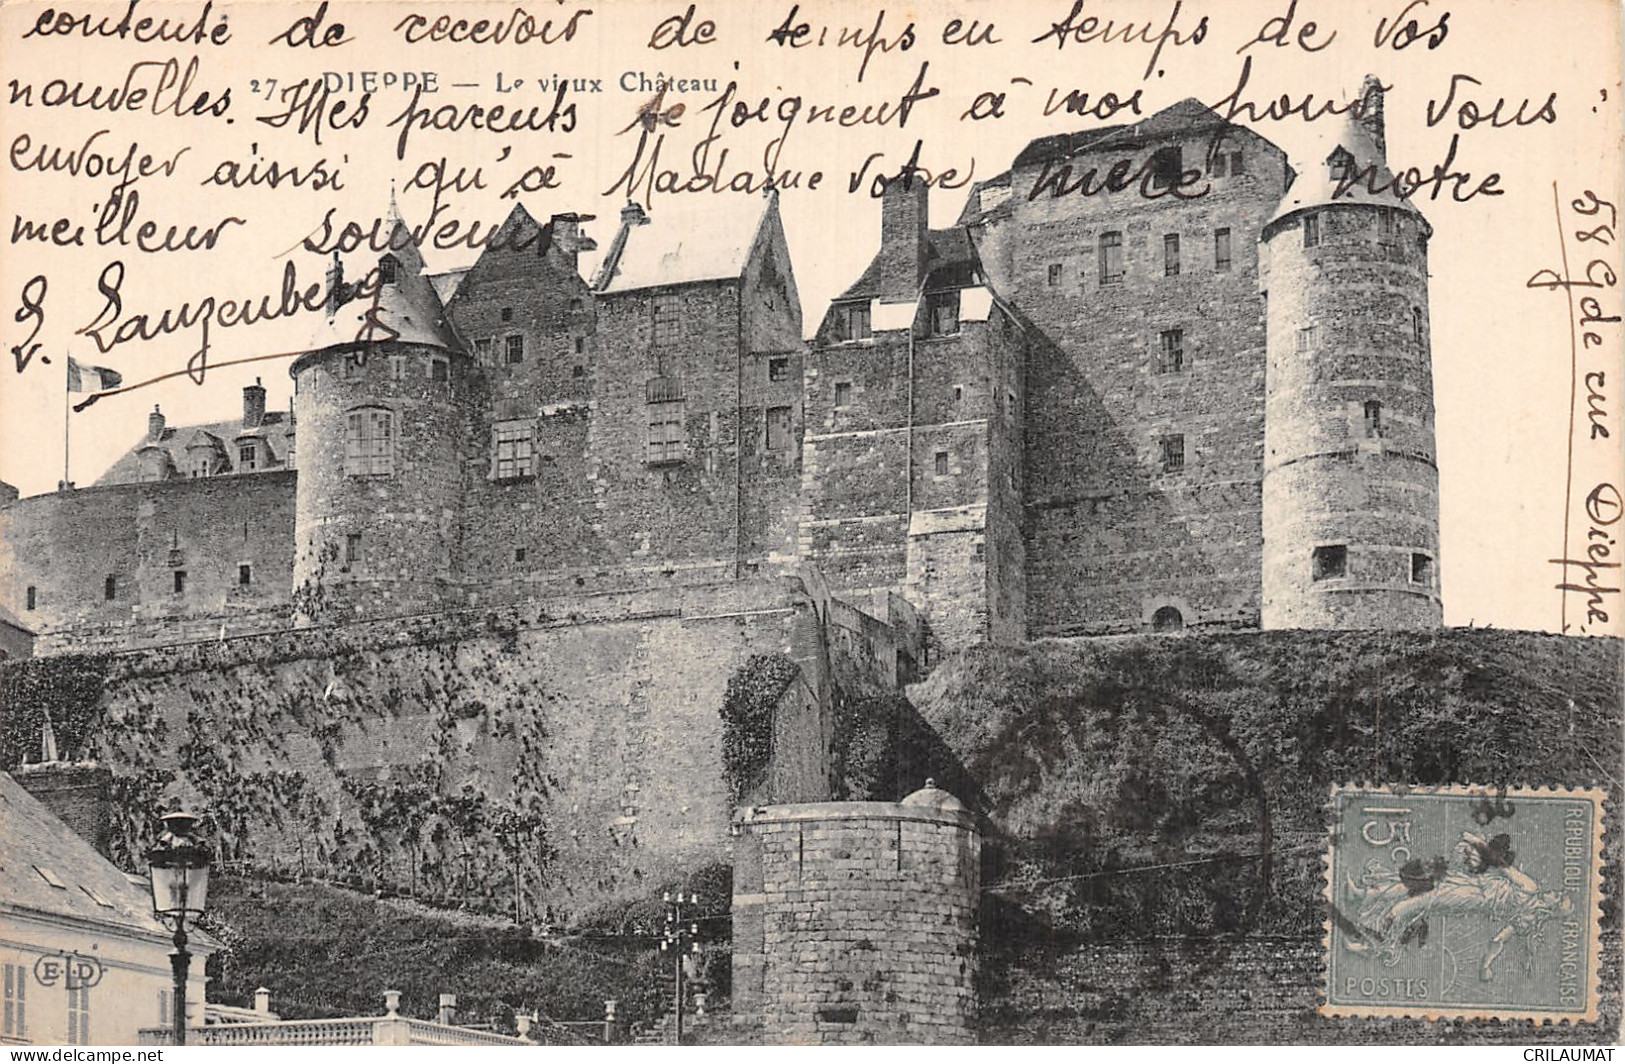 contente de recevoir de temps en temps de vos
nouvelles. Mes parents se joignent à moi pour vous
envoyer ainsi qu'à Madame votre mère notre
meilleur souvenir
L. Lauzenberg
27. DIEPPE — Le vieux Château
58 Gde rue Dieppe.
15c
REPUBLIQUE FRANÇAISE
POSTES
E.L.D
CRILAUMAT